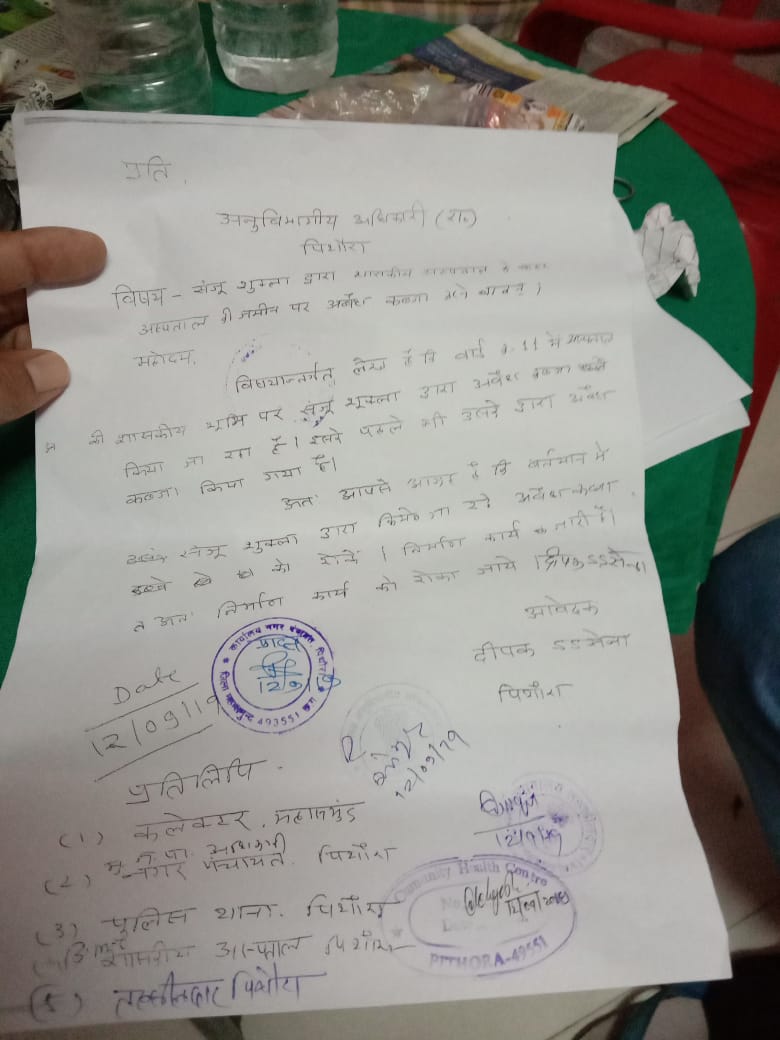 प्रति,
अनुविभागीय अधिकारी (रा०)
पिथौरा
विषय - संजू शुक्ला द्वारा शासकीय
अस्पताल की जमीन पर अवैध कब्जा करने बाबत्।
महोदय,
विषयान्तर्गत लेख है कि वार्ड न-11 में
की शासकीय भूमि पर संजू शुक्ला द्वारा अवैध कब्जा
किया जा रहा है। इसके पहले भी उसके द्वारा अवैध
कब्जा किया गया है।
अतः आपसे आग्रह है कि वर्तमान में
संजू शुक्ला द्वारा किये जा रहे अवैध कब्जा
को रोकें। निर्माण कार्य जारी है।
अतः निर्माण कार्य को रोका जाये।
आवेदक
दीपक डडसेना
पिथौरा
कार्यालय नगर पंचायत पिथौरा
जिला महासमुन्द 493551
12/9/19
Date
12/09/19
12/09/19
प्रतिलिपि
(1) कलेक्टर, महासमुंद
(2) मु. न. पा. अधिकारी
नगर पंचायत पिथौरा
12/9/19
(3) पुलिस थाना. पिथौरा
Community Health Centre
No.
PITHORA-493551
शासकीय अस्पताल पिथौरा
(5) तहसीलदार पिथौरा